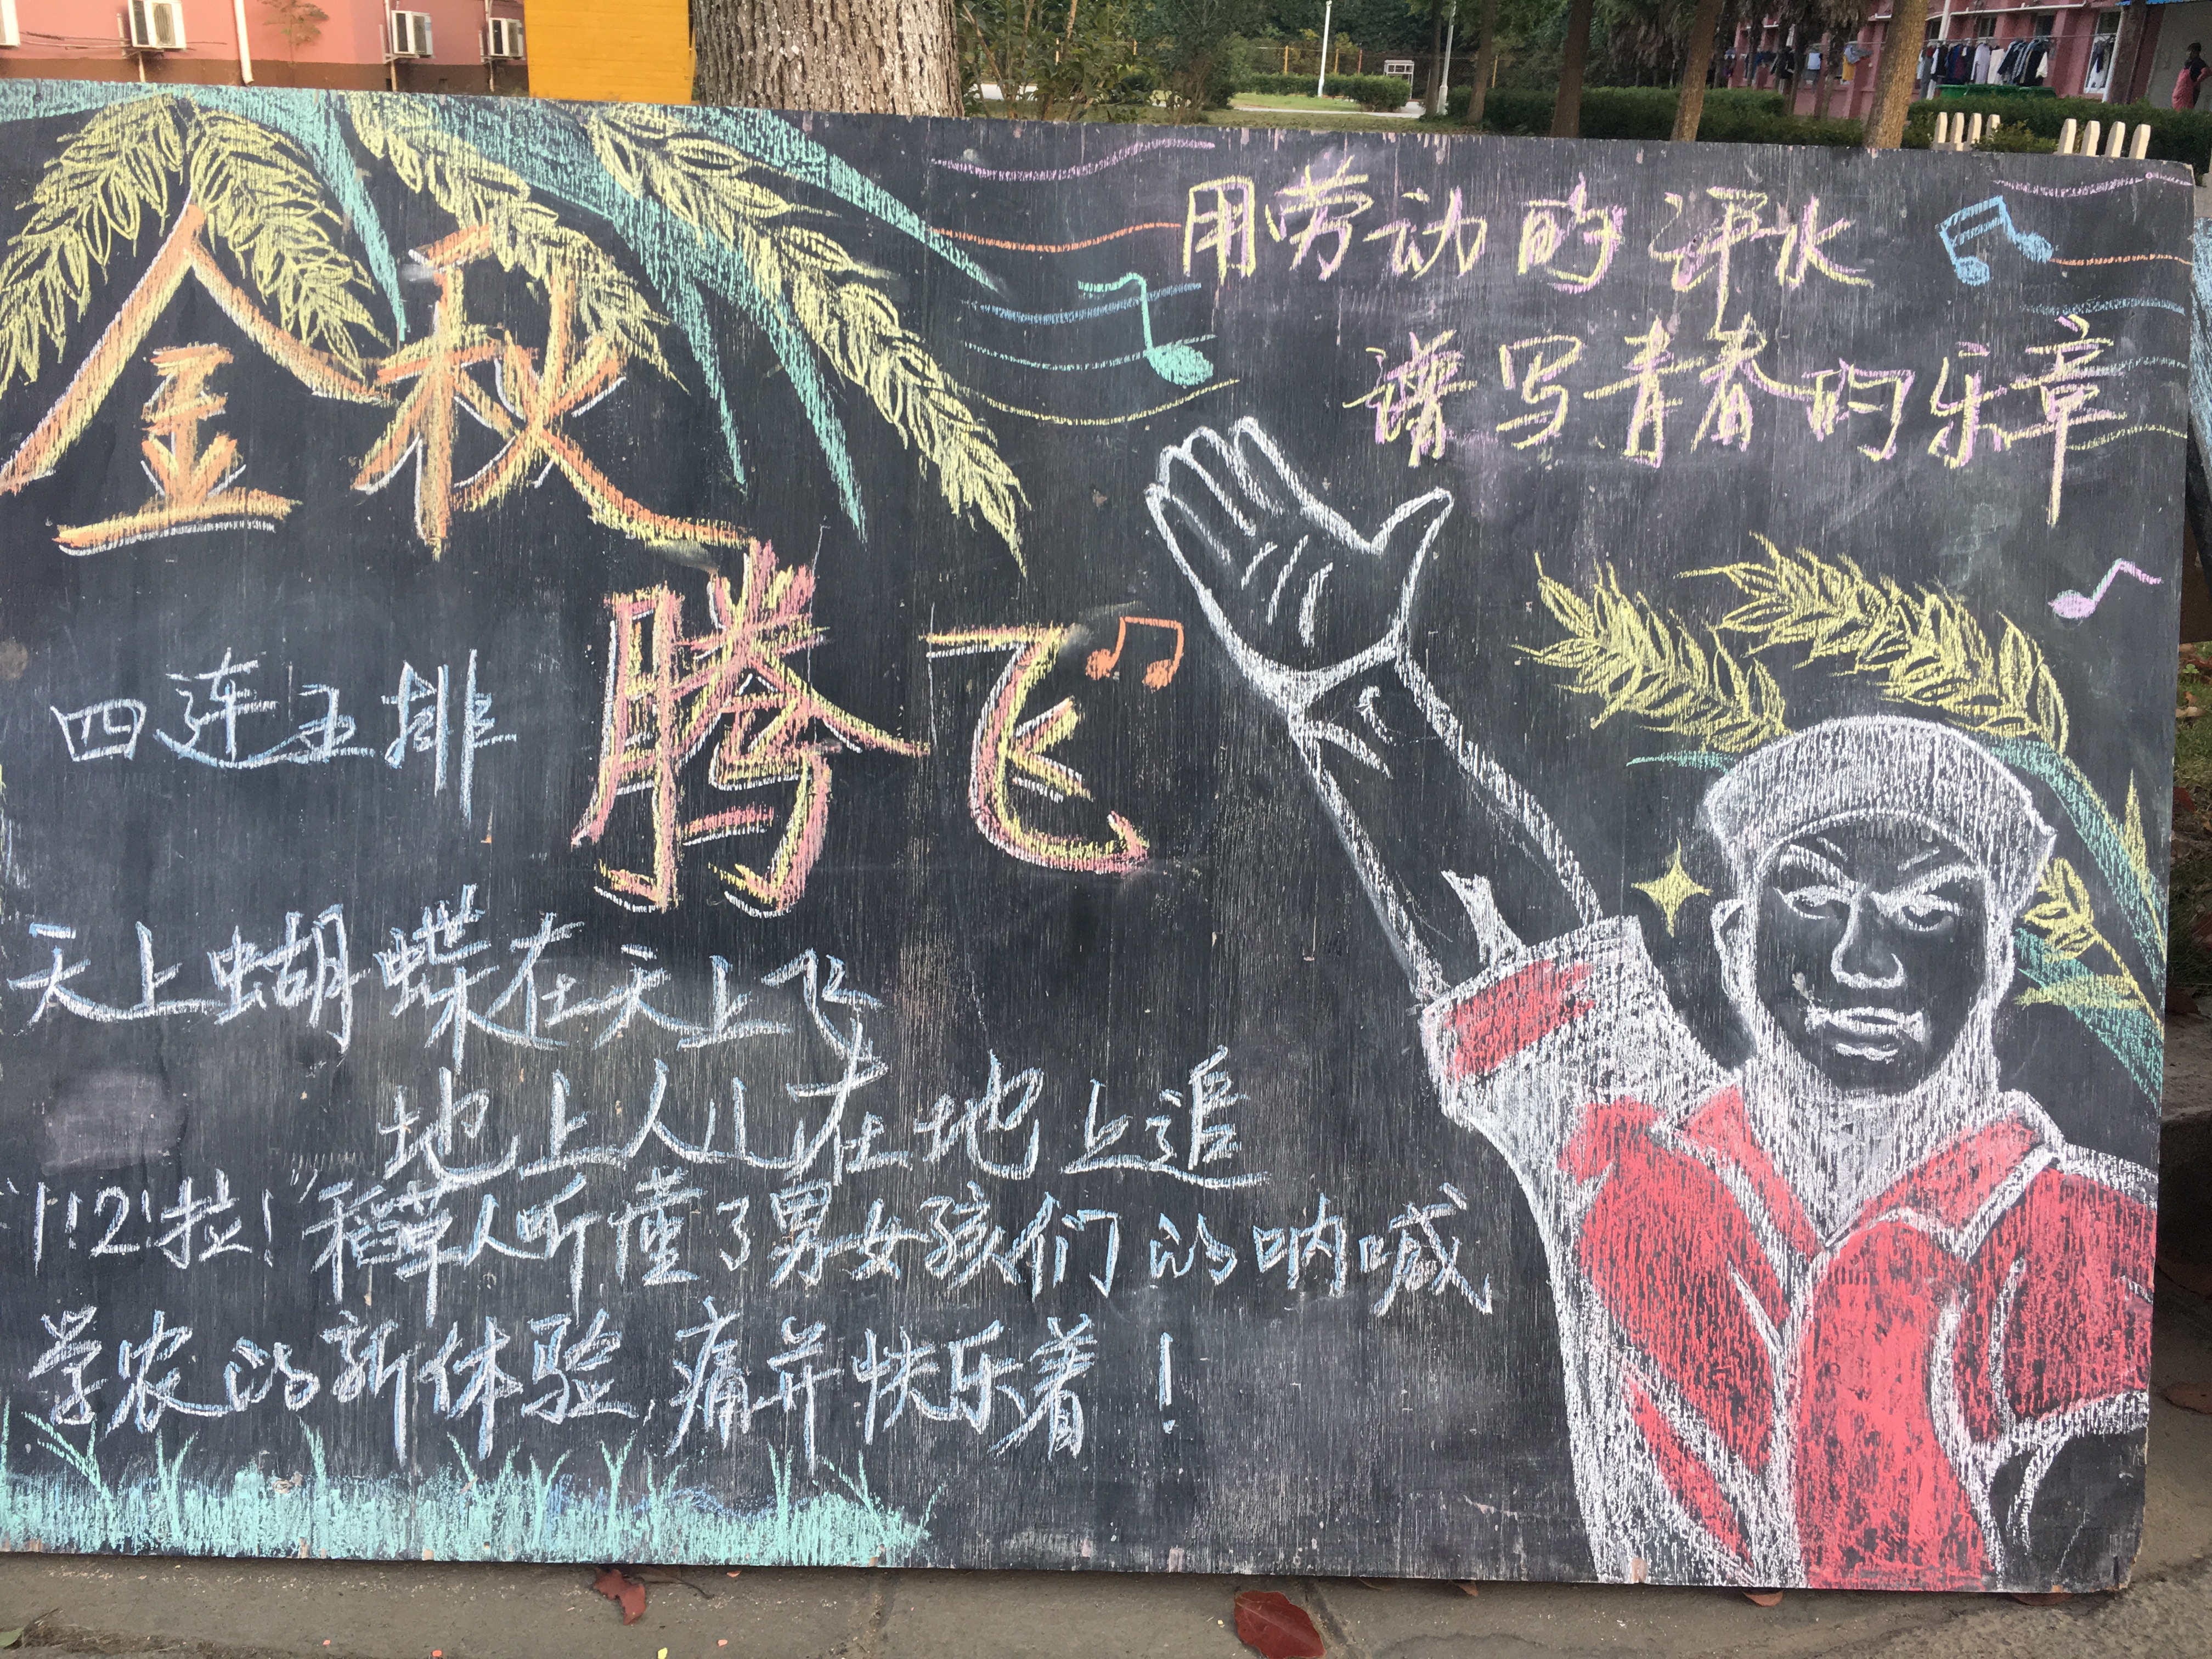 金秋
腾飞
用劳动的汗水
谱写青春的乐章
四连五排
天上蝴蝶在天上飞
地上人儿在地上追
"1!2!拉!"稻草人听懂了男女孩们的呐喊
学农的新体验,痛并快乐着!